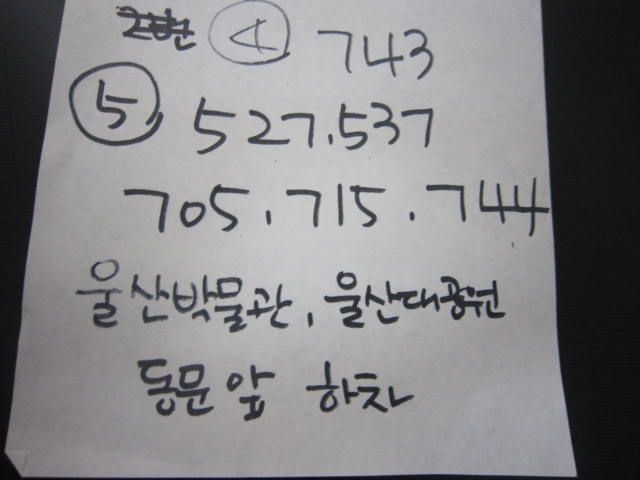 4 743
5 527.537
705.715.744
울산박물관, 울산대공원
동문앞 하차